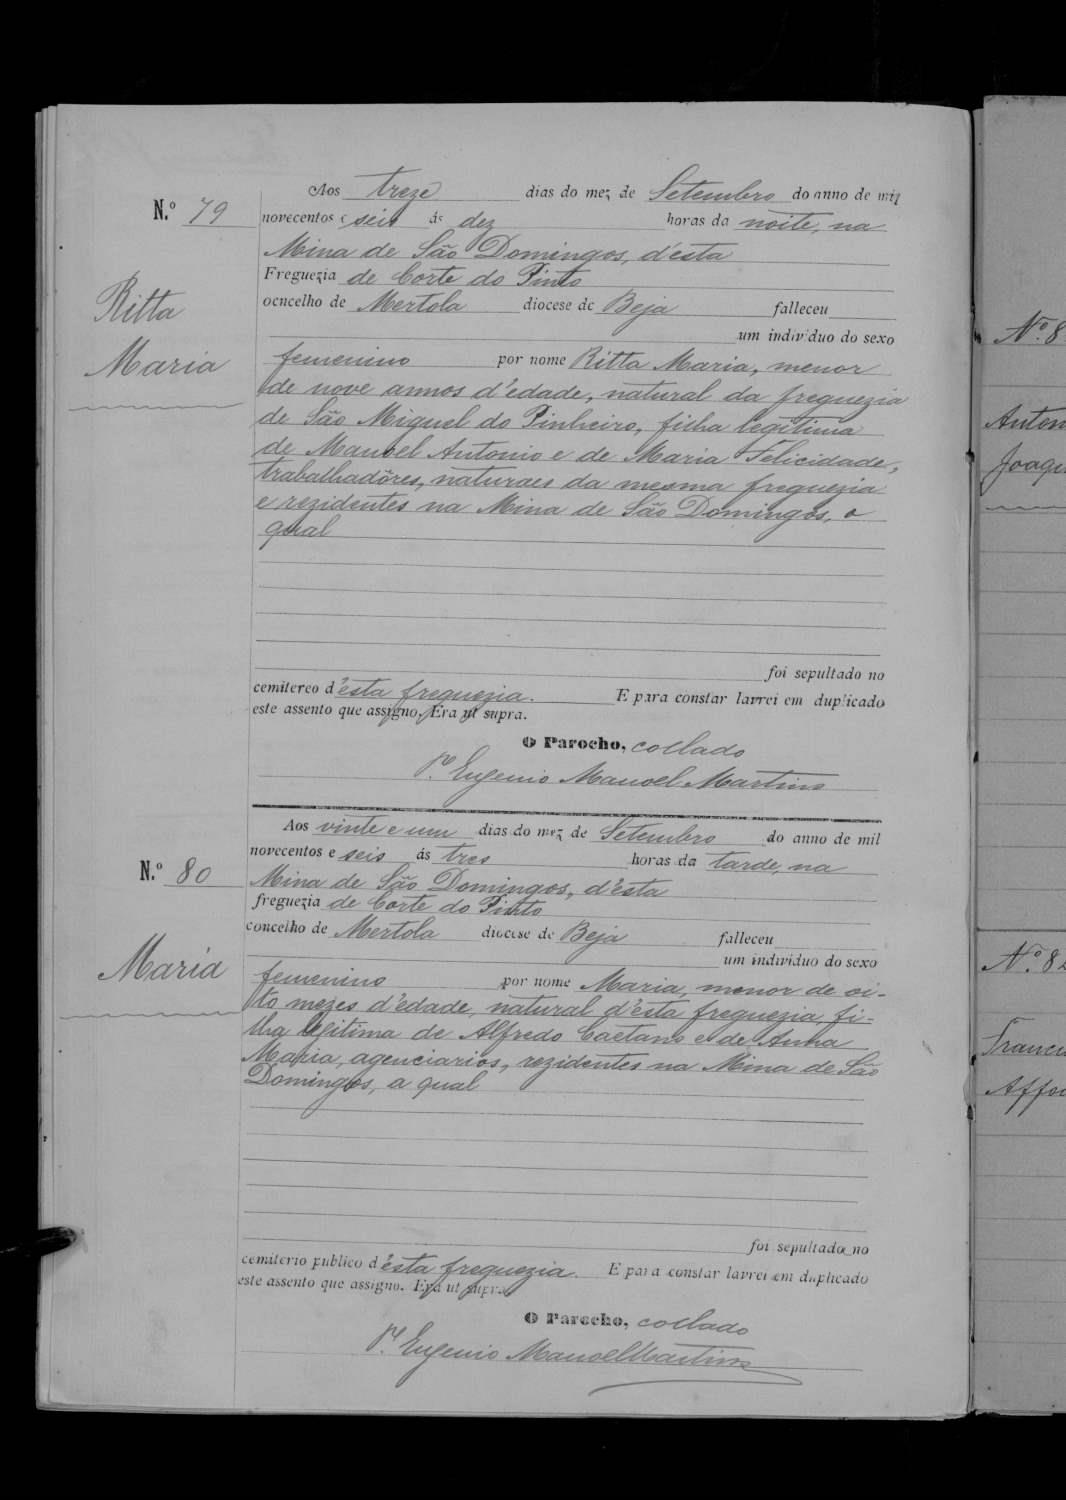 Aos treze dias do mez de Setembro do anno de mil
N.º 79
novecentos e seis ás dez horas da noite, na
Mina de São Domingos, d'ésta
Freguezia de Corte do Pinto
Ritta
Maria
concelho de Mertola diocese de Beja falleceu
um individuo do sexo
femenino por nome Ritta Maria, menor
de nove annos d'édade, natural da freguezia
de São Miguel do Pinheiro, filha legitima
de Manoel Antonio e de Maria Felicidade,
trabalhadôres, naturaes da mesma freguezia
e rezidentes na Mina de São Domingos, o
qual
foi sepultado no
cemitereo d'ésta freguezia. E para constar lavrei em duplicado
este assento que assigno. Era ut supra.
O Parocho, collado
P.e Eugenio Manoel Martins
Aos vinte e um dias do mez de Setembro do anno de mil
novecentos e seis ás tres horas da tarde, na
N.º 80
Mina de São Domingos, d'ésta
freguezia de Corte do Pinto
concelho de Mertola diocese de Beja falleceu
um individuo do sexo
Maria
femenino por nome Maria, menor de oi-
to mezes d'édade, natural d'ésta freguezia, fi-
lha legitima de Alfredo Caetano e de Anna
Maria, agenciarios, rezidentes na Mina de São
Domingos, a qual
foi sepultado no
cemiterio publico d'ésta freguezia. E para constar lavrei em duplicado
este assento que assigno. Era ut supra
O Parocho, collado
P.e Eugenio Manoel Martins
N.º 8
Anton
Joaqu
N.º 82
Franci
Affo